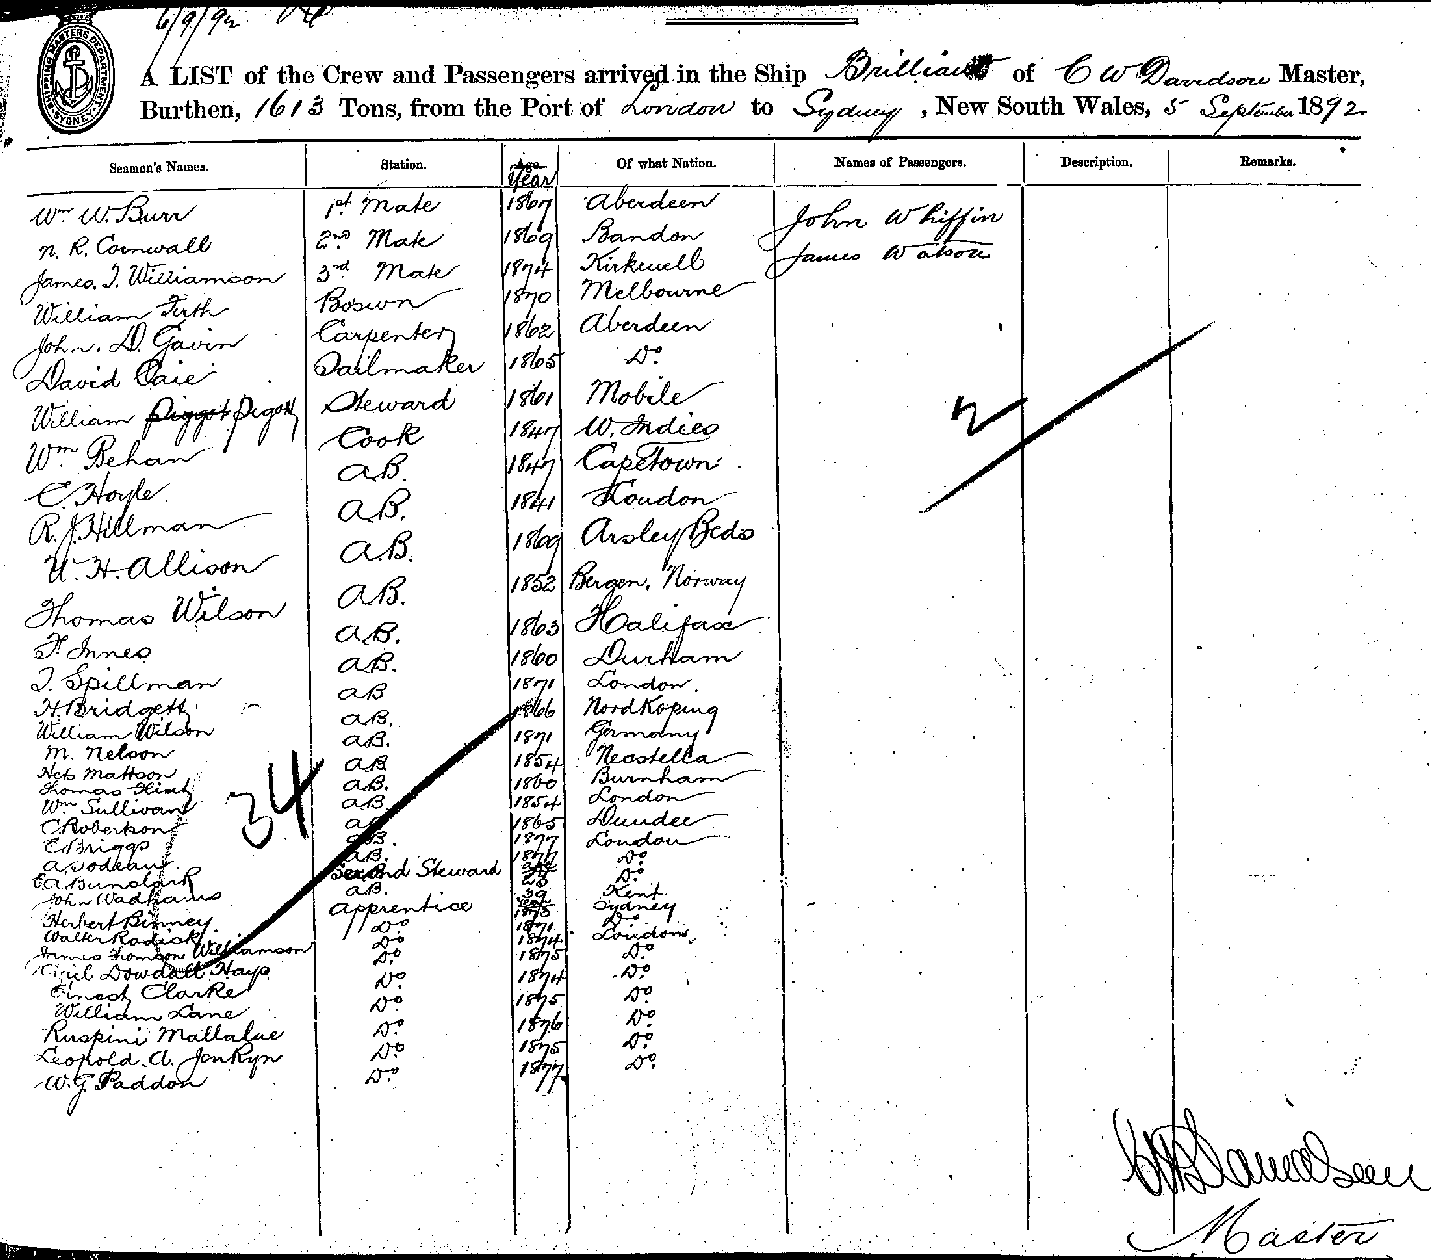 6/9/92
A LIST of the Crew and Passengers arrived in the Ship Brilliant of C W Davidson Master,
Burthen, 1613 Tons, from the Port of London to Sydney, New South Wales, 5 September 1892
Seamen's Names. Station. Age Year Of what Nation. Names of Passengers. Description. Remarks.
Wm W. Burr 1st Mate 1867 Aberdeen John Whiffin
N. R. Cornwall 2nd Mate 1869 Bandon James Watson
James. J. Williamson 3rd Mate 1874 Kirkwell
William Firth Boswn 1870 Melbourne
John. D. Gavin Carpenter 1862 Aberdeen
David Caie Sailmaker 1865 Do
William Piggot Pigott Steward 1861 Mobile
Wm Behan Cook 1847 W. Indies
C. Hoyle A.B. 1847 CapeTown
R. J. Hillman A.B. 1841 London
W. H. Allison A.B. 1869 Arsley Beds
Thomas Wilson A.B. 1852 Bergen, Norway
F. Innes A.B. 1863 Halifax
T. Spillman A.B. 1860 Durham
H. Bridgett A.B 1871 London.
William Wilson A.B. 1866 NordKoping
M. Nelson A.B. 1871 Germany
Mattson A.B 1854
Thomas Flint A.B. 1860 Burnham
Wm Sullivan A.B. 1854 London
C Robertson A.B. 1865 Dundee
E Briggs A.B. 1877 London
A. A.B. 1877 Do
Second Steward 23 Do
John Wadhams A.B. 39 Kent
Herbert Binney Apprentice 1875 Sydney
Walter Do 1871 Do
James Thomson Williamson Do 1874 London
Cecil Dowdall Hays Do 1875 Do
Ernest Clarke Do 1874 Do
William Lane Do 1875 Do
Ruspini Mallalue Do 1876 Do
Leopold. A. Jenkyn Do 1875 Do
W. G. Paddon Do 1877 Do
34
2
C W Davidson
Master